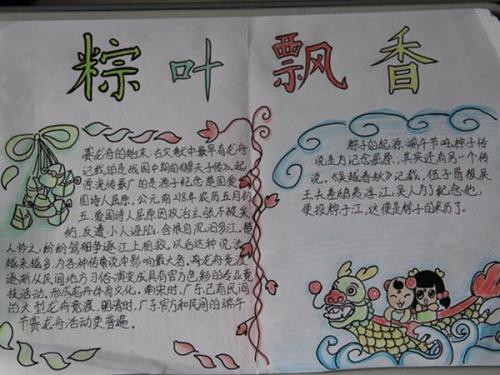 粽叶飘香
赛龙舟的始末：古文献中最早有龙舟
记载的是战国中期的《穆天子传》。起
源流传最广的是源于纪念楚国爱
国诗人屈原。公元前278年农历五月初
五，爱国诗人屈原因政治主张不被采
纳，反遭小人诬陷，含恨自沉汨罗江。楚
人怜之，纷纷驾船争逐江上相救，以后这种说法
越来越多，为各种传奇说中影响最大者。赛龙舟竞渡
逐渐从民间地方习俗，演变成具有官方色彩的专业竞
技活动，形成龙舟体育文化。南宋时，广东已有民间
的大型龙舟竞渡。明清时，广东官方和民间的端午
节赛龙舟活动更普遍。
粽子的起源：端午节吃粽子传
说是为记念屈原，其实还有另一个传
说。《吴越春秋》记载，伍子胥被吴
王夫差赐死浮江，吴人为了纪念他，
便投粽子江，这便是粽子的来历了。